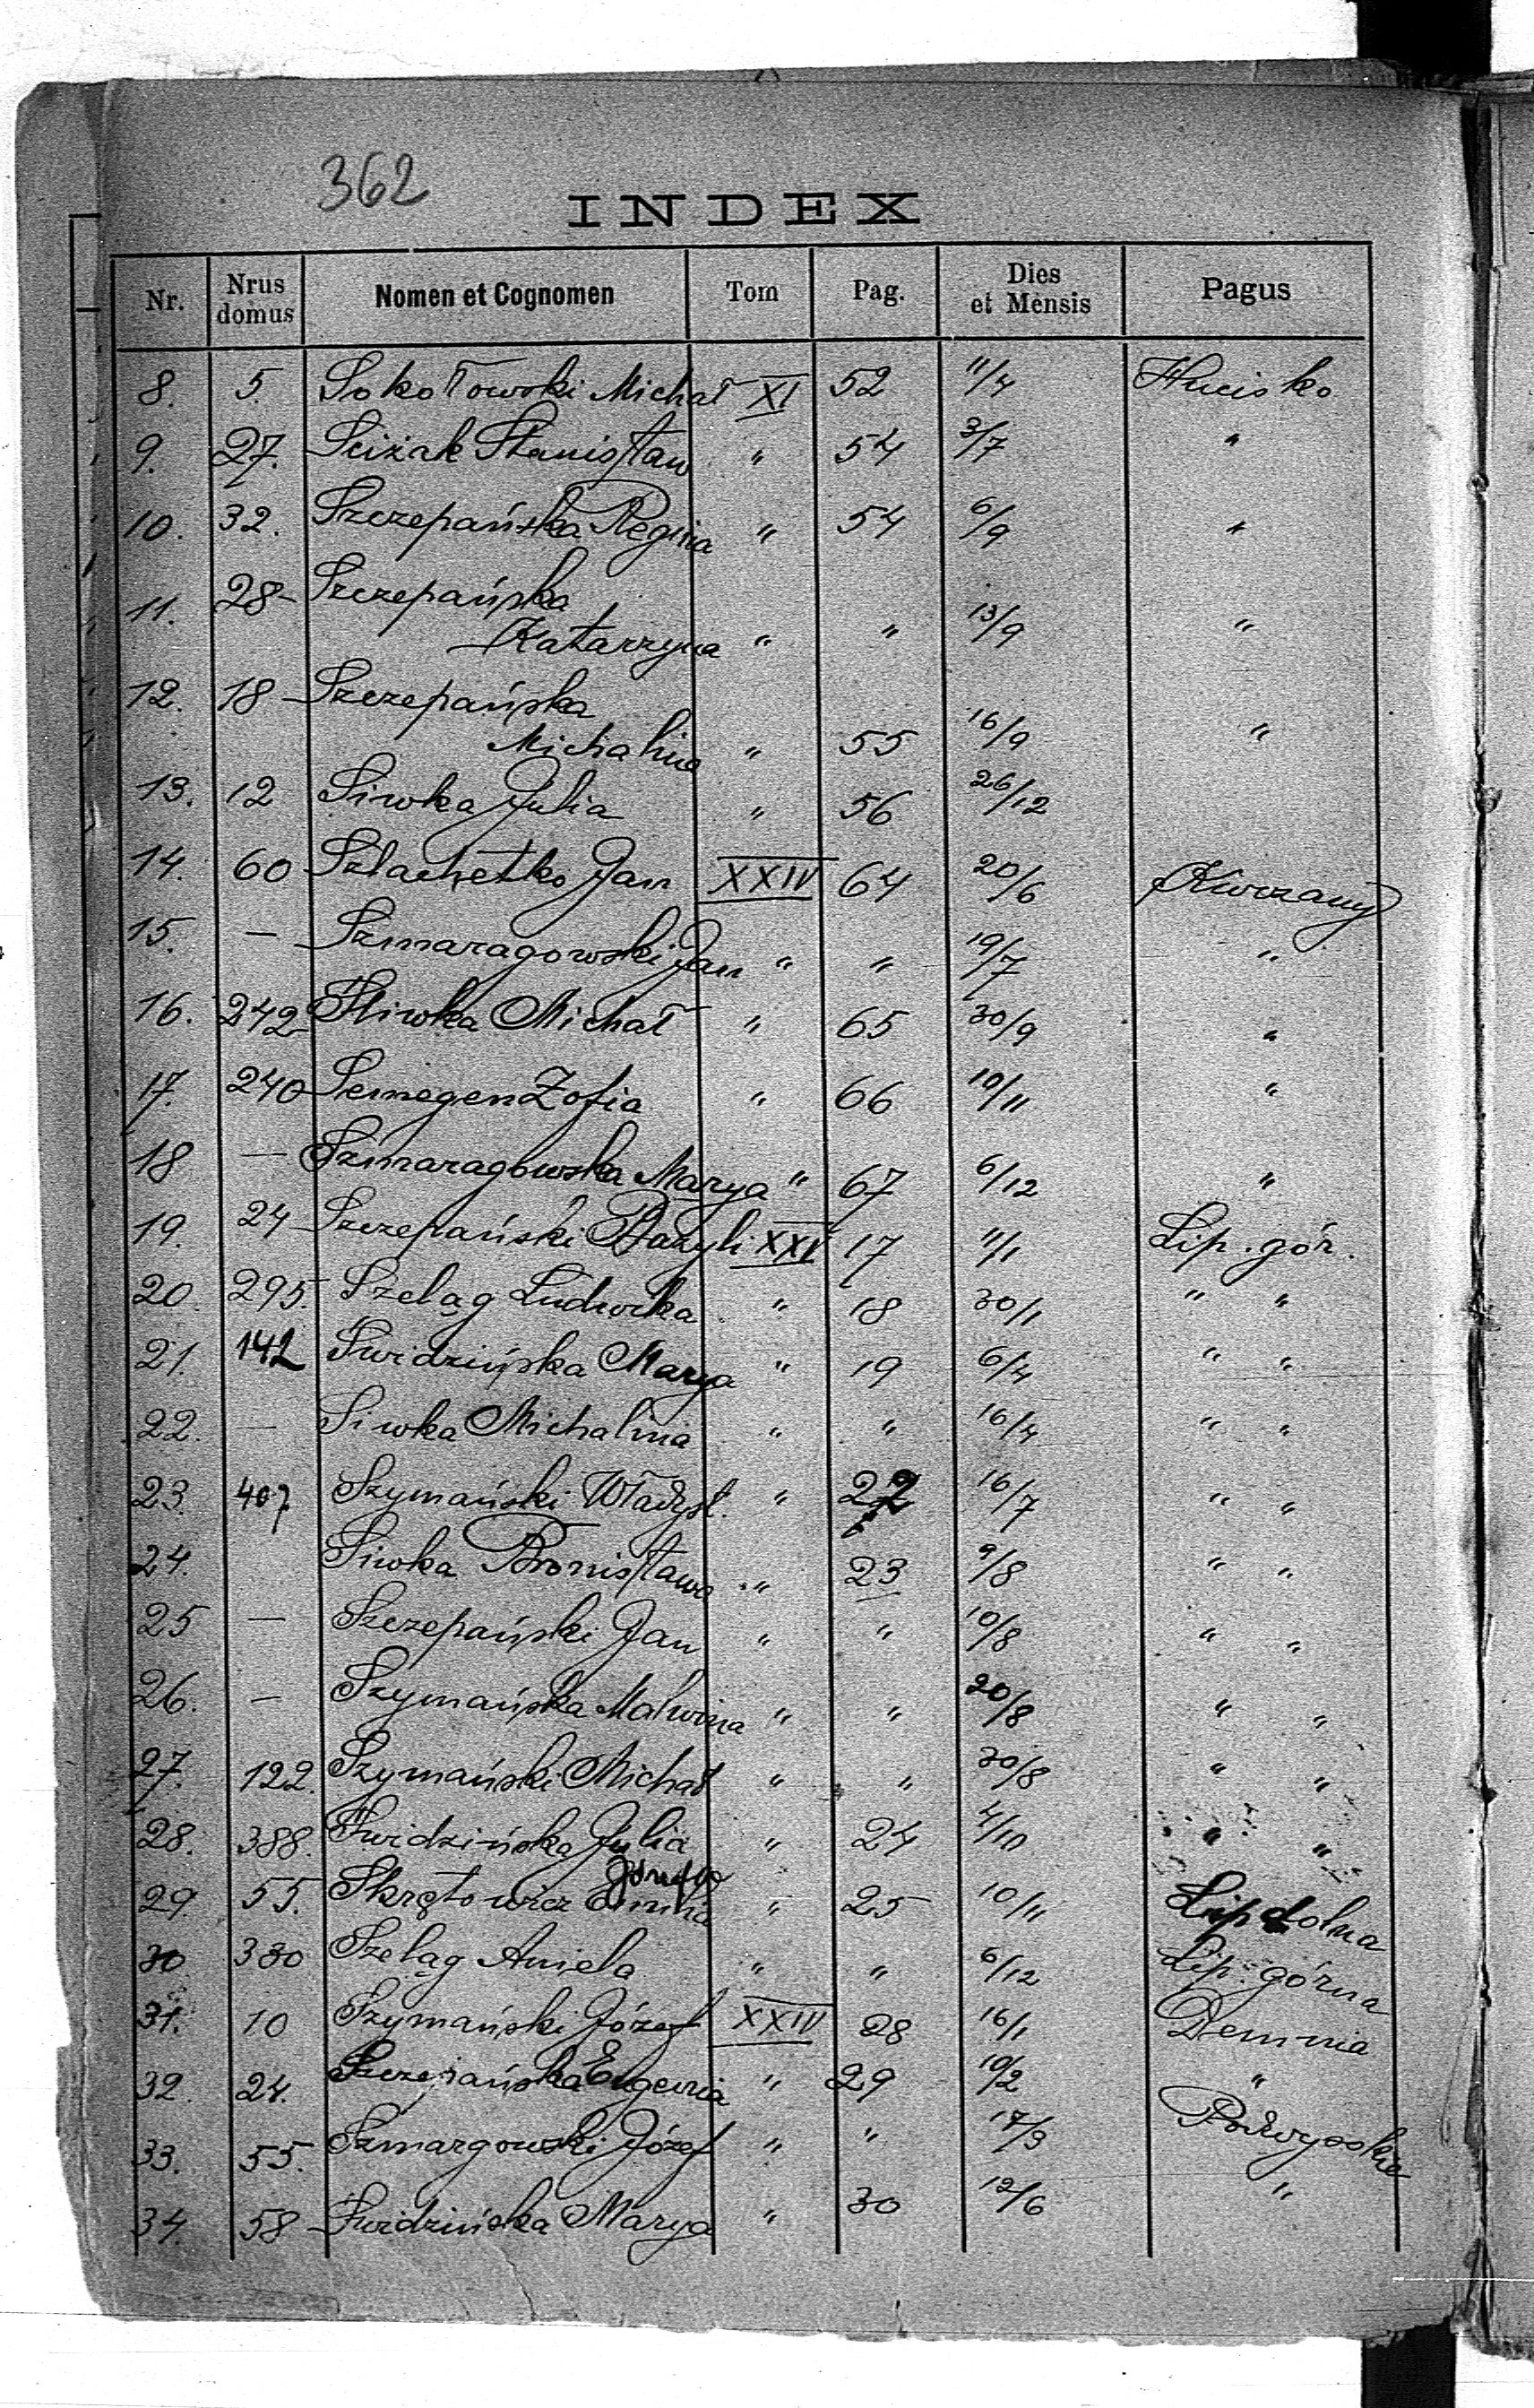 362
INDEX
Nr. Nrus domus Nomen et Cognomen Tom Pag. Dies et Mensis Pagus
8. 5. Sokołowski Michał XI 52 11/4 Hucisko
9. 27. Sciżak Stanisław " 54 3/7 "
10. 32. Szczepańska Regina " 54 6/9 "
11. 28- Szczepańska
Katarzyna " " 13/9 "
12. 18- Szczepańska
Michalina " 55 16/9 "
13. 12 Siwka Julia " 56 26/12
14. 60 Szlachetko Jan XXIV 64 20/6 Kurzany
15. — Szmaragowski Jan " " 19/7 "
16. 242- Śliwka Michał " 65 30/9 "
17. 240 Semegen Zofia " 66 10/11 "
18 — Szmaragowska Marya " 67 6/12 "
19. 24 Szczepański Bazyli XXV 17 11/1 Lip. gór.
20. 295. Szeląg Ludwika " 18 30/1 " "
21. 142 Świdzińska Marya " 19 6/4 " "
22. — Siwka Michalina " " 16/4 " "
23. 407 Szymański Władysł. " 22 16/7 " "
24. Siwka Bronisława " 23 9/8 " "
25 — Szczepański Jan " " 10/8 " "
26. — Szymańska Malwina " " 20/8 " "
27. 122. Szymański Michał " " 30/8 " "
28. 388. Świdzińska Julia " 24 4/10 " "
29. 55. Skrętowicz Emilia " 25 10/11 Lip dolna
30 330 Szeląg Aniela " " 6/12 Lip. górna
31. 10 Szymański Józef XXIV 28 16/1 Demnia
32. 24. Szczepańska Eugenia " 29 10/2 "
33. 55. Szmargowski Józef " " 17/3 Podwysokie
34. 58- Świdzińska Marya " 30 12/6 "